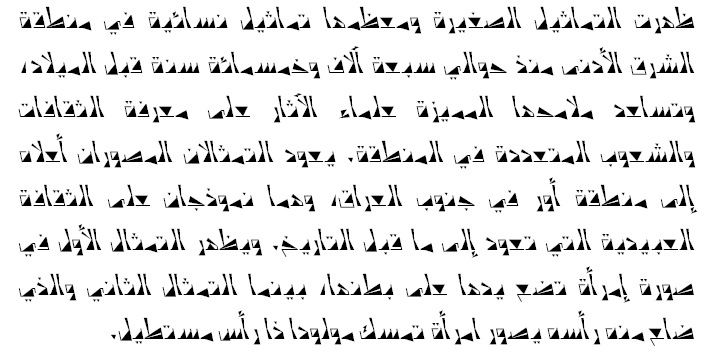 ظهرت التماثيل الصغيرة ومعظمها تماثيل نسائية في منطقة
الشرق الأدنى منذ حوالي سبعة آلاف وخمسمائة سنة قبل الميلاد،
وتساعد ملامحها المميزة علماء الآثار على معرفة الثقافات
والشعوب المتعددة في المنطقة. يعود التمثالان المصوران أعلاه
إلى منطقة أور في جنوب العراق، وهما نموذجان على الثقافة
العبيدية التي تعود إلى ما قبل التاريخ. ويظهر التمثال الأول في
صورة إمرأة تضع يدها على بطنها، بينما التمثال الثاني والذي
ضاع منه رأسه يصور امرأة تمسك مولودا ذا رأس مستطيل.